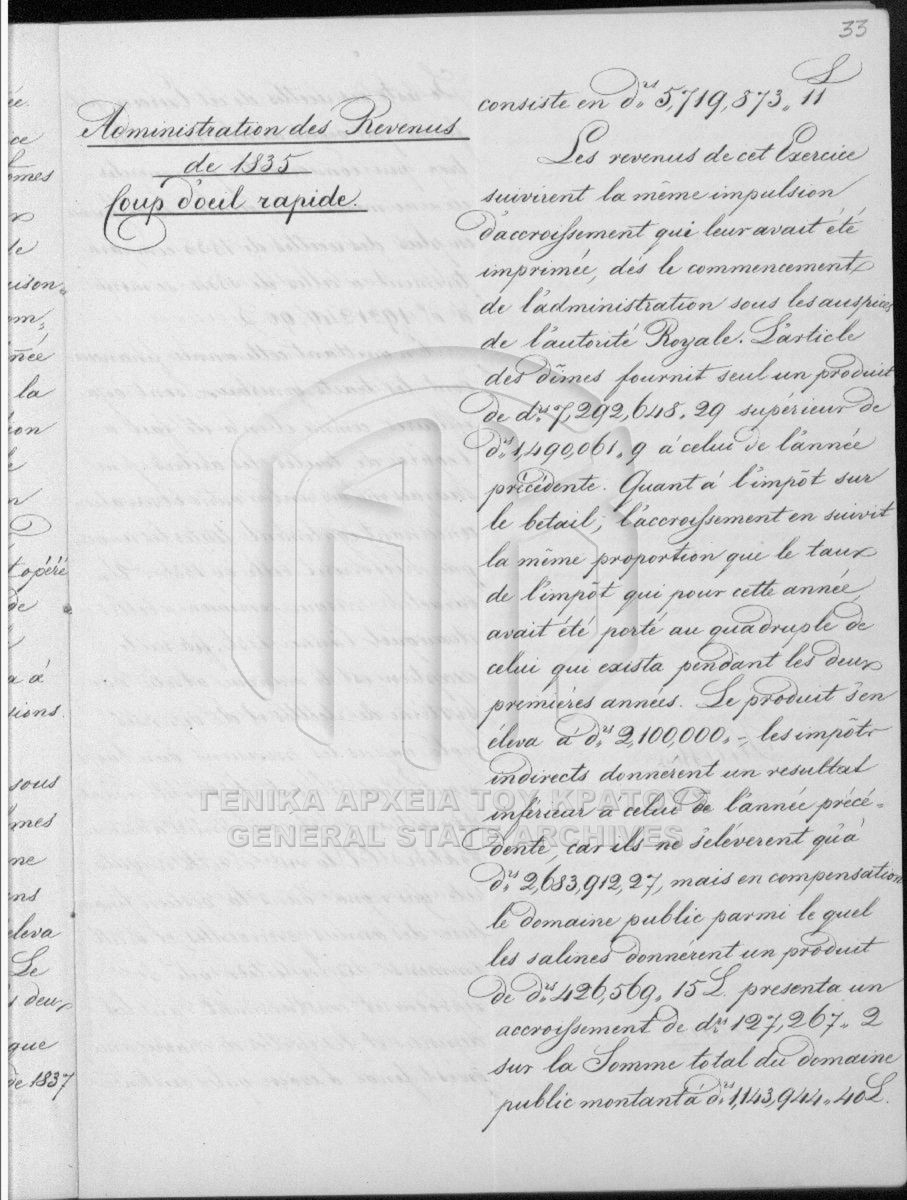 33
ée.
ce
omes
x
le
uison=
om=
inée
la
ion
le
n
t opéré
de
a à
sions.
sous
mes
me
ens
éleva
Le
s deux
que
de 1837
Administration des Revenus
de 1835
Coup d'oeil rapide.
consiste en drs 5,719,873,, 11
Les revenus de cet Exercice
suivirent la même impulsion
d'accroissement qui leur avait été
imprimée, dès le commencement
de l'administration sous les auspices
de l'autorité Royale. L'article
des dîmes fournit seul un produit
de drs 7,292,648,, 29 supérieur de
drs 1,490,061,, 9 à celui de l'année
précédente. Quant à l'impôt sur
le betail, l'accroissement en suivit
la même proportion que le taux
de l'impôt qui pour cette année,
avait été porté au quadruple de
celui qui exista pendant les deux
premières années. Le produit s'en
éleva à drs 2,100,000,, – les impôts
indirects donnèrent un resultat
inférieur à celui de l'année précé=
dente, car ils ne s'élévèrent qu'à
drs 2,683,912,27, mais en compensation
le domaine public parmi le quel
les salines donnèrent un produit
de drs 426,569,, 15 L. presenta un
accroissement de drs 127,267,, 2
sur la Somme total du domaine
public montant à drs 1,143,944,, 40 L.
ΓΕΝΙΚΑ ΑΡΧΕΙΑ ΤΟΥ ΚΡΑΤΟΥΣ
GENERAL STATE ARCHIVES